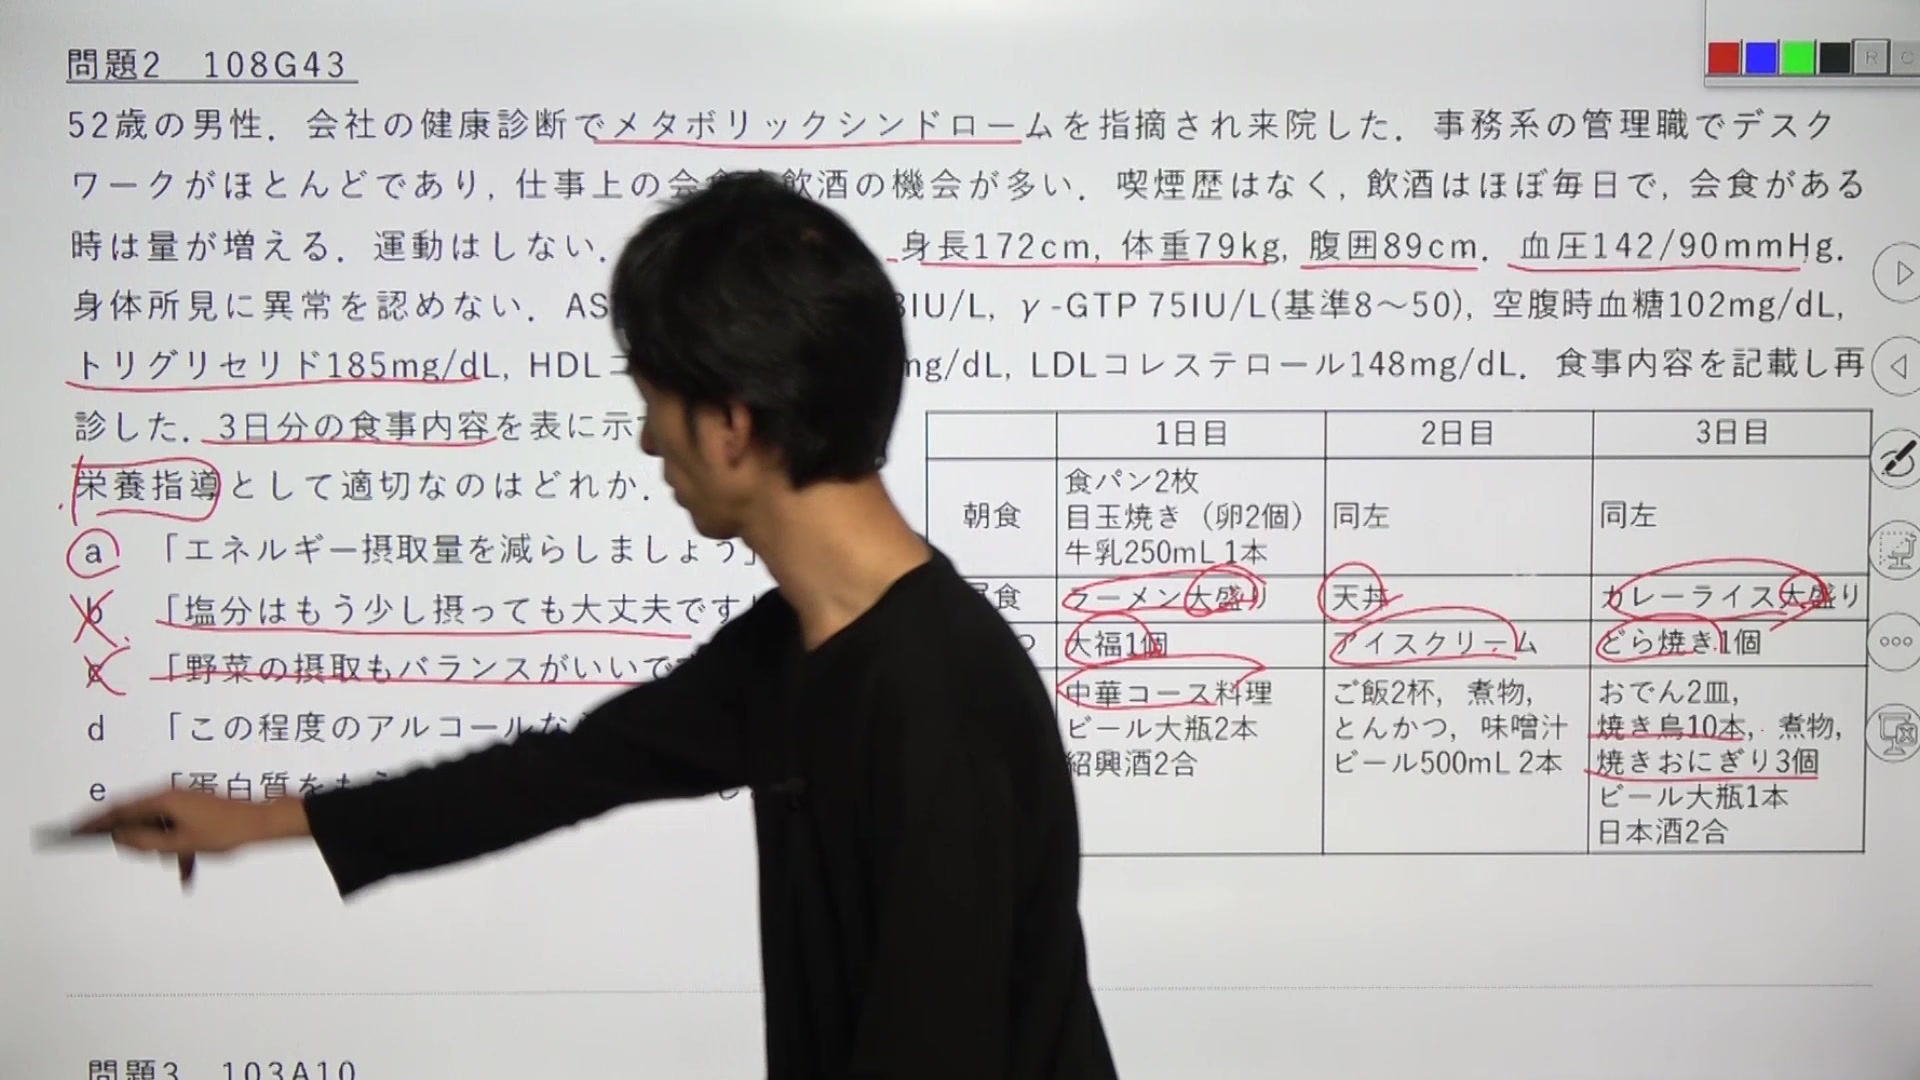 問題2 108G43
52歳の男性．会社の健康診断でメタボリックシンドロームを指摘され来院した．事務系の管理職でデスク
ワークがほとんどであり，仕事上の会食 飲酒の機会が多い．喫煙歴はなく，飲酒はほぼ毎日で，会食がある
時は量が増える．運動はしない． 身長172cm，体重79kg，腹囲89cm．血圧142/90mmHg．
身体所見に異常を認めない．AS IU/L，γ-GTP 75IU/L(基準8〜50)，空腹時血糖102mg/dL，
トリグリセリド185mg/dL，HDLコ mg/dL，LDLコレステロール148mg/dL．食事内容を記載し再
診した．3日分の食事内容を表に示
栄養指導として適切なのはどれか．
a 「エネルギー摂取量を減らしましょう」
b 「塩分はもう少し摂っても大丈夫です
c 「野菜の摂取もバランスがいいで
d 「この程度のアルコールな
e 「蛋白質をもう
1日目 2日目 3日目
朝食 食パン2枚 同左 同左
目玉焼き（卵2個）
牛乳250mL 1本
食 ラーメン大盛り 天丼 カレーライス大盛り
つ 大福1個 アイスクリーム どら焼き1個
中華コース料理 ご飯2杯，煮物， おでん2皿，
ビール大瓶2本 とんかつ，味噌汁 焼き鳥10本，煮物，
紹興酒2合 ビール500mL 2本 焼きおにぎり3個
ビール大瓶1本
日本酒2合
問題3 103A10
R C